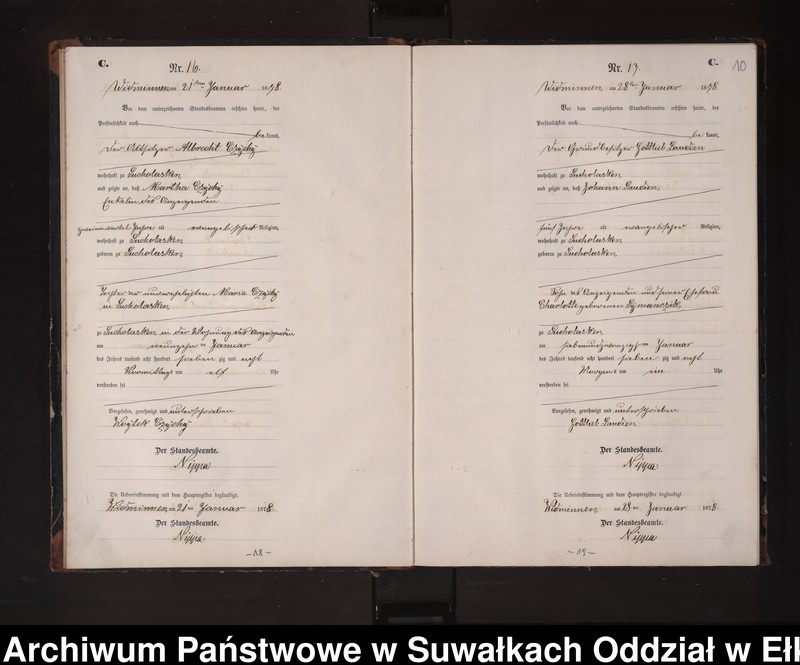 C.
Nr. 16.
Widminnen am 21ten Januar 1878.
Vor dem unterzeichneten Standesbeamten erschien heute, der
Persönlichkeit nach
bekannt,
der Altsitzer Albrecht Czychy
wohnhaft zu Sucholasken
und zeigte an, daß Martha Czychy
Enkelin des Anzeigenden
Jahre alt evangelischer Religion,
wohnhaft zu Sucholasken
geboren zu Sucholasken
Tochter der unverehelichten Maria Czychy
in Sucholasken
zu Sucholasken in der Wohnung des Anzeigenden
am neunzehnten Januar
des Jahres tausend acht hundert siebenzig und acht
Vormittags um elf Uhr
verstorben sei
Vorgelesen, genehmigt und unterschrieben
Czychy
Der Standesbeamte.
Nippa
Die Uebereinstimmung mit dem Hauptregister beglaubigt.
Widminnen am 21ten Januar 1878
Der Standesbeamte.
Nippa
-18-
C.
10
Nr. 17.
Widminnen am 28ten Januar 1878
Vor dem unterzeichneten Standesbeamten erschien heute, der
Persönlichkeit nach
bekannt,
der Grundbesitzer Gottlieb Laudien
wohnhaft zu Sucholasken
und zeigte an, daß Johann Laudien,
fünf Jahre alt evangelischer Religion,
wohnhaft zu Sucholasken
geboren zu Sucholasken,
Sohn des Anzeigenden und seiner Ehefrau
Charlotte geborenen Symanczik
zu Sucholasken
am siebenundzwanzigsten Januar
des Jahres tausend acht hundert siebenzig und acht
Morgens um ein Uhr
verstorben sei
Vorgelesen, genehmigt und unterschrieben
Gottlieb Laudien
Der Standesbeamte.
Nippa
Die Uebereinstimmung mit dem Hauptregister beglaubigt.
Widminnen, am 28ten Januar 1878.
Der Standesbeamte.
Nippa
-19-
Archiwum Państwowe w Suwałkach Oddział w Ełk